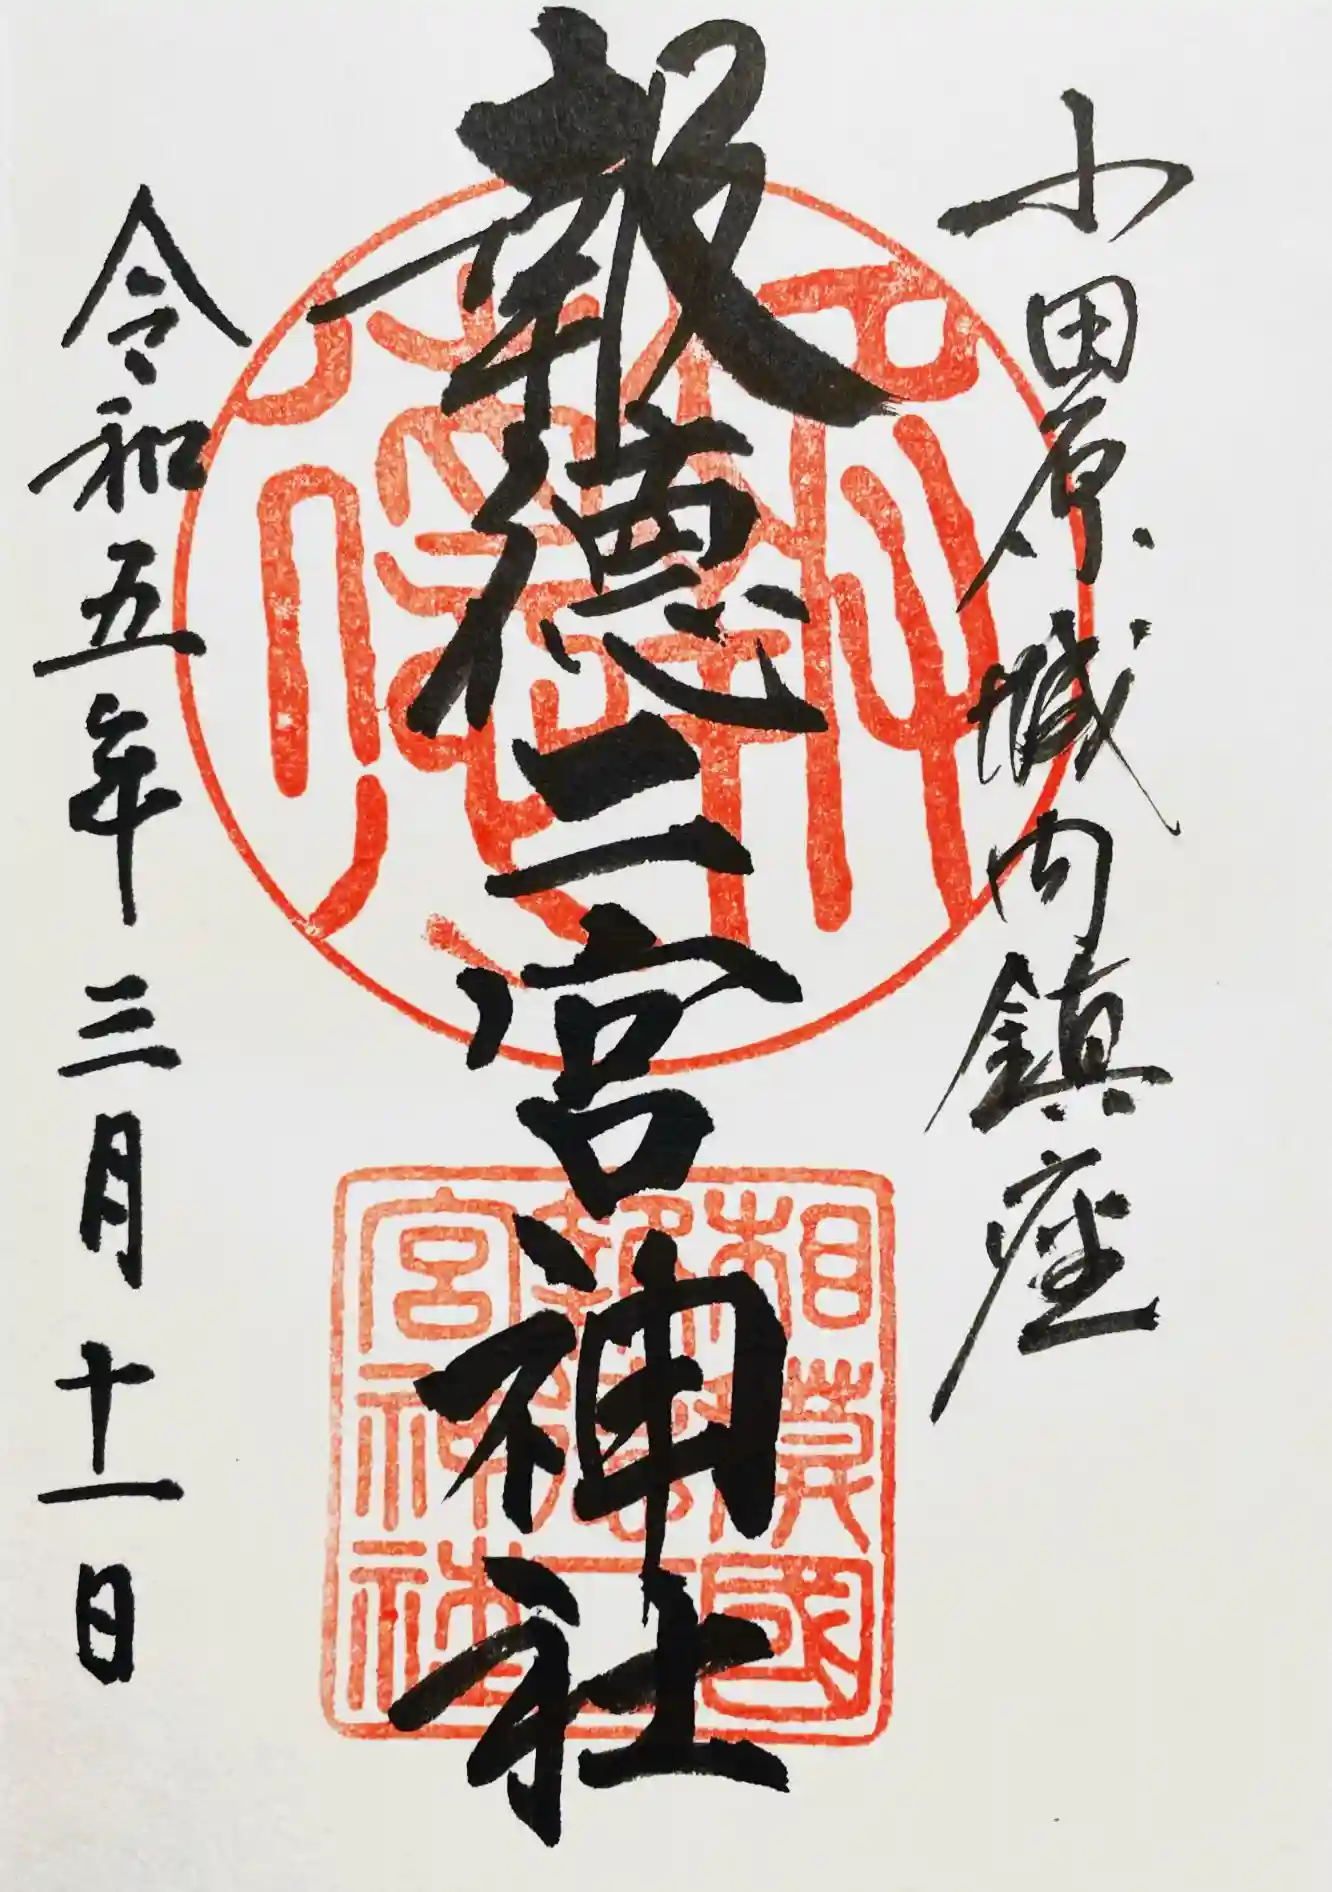 小田原城内鎮座
報徳二宮神社
令和五年三月十一日
相模國
報徳二
宮神社